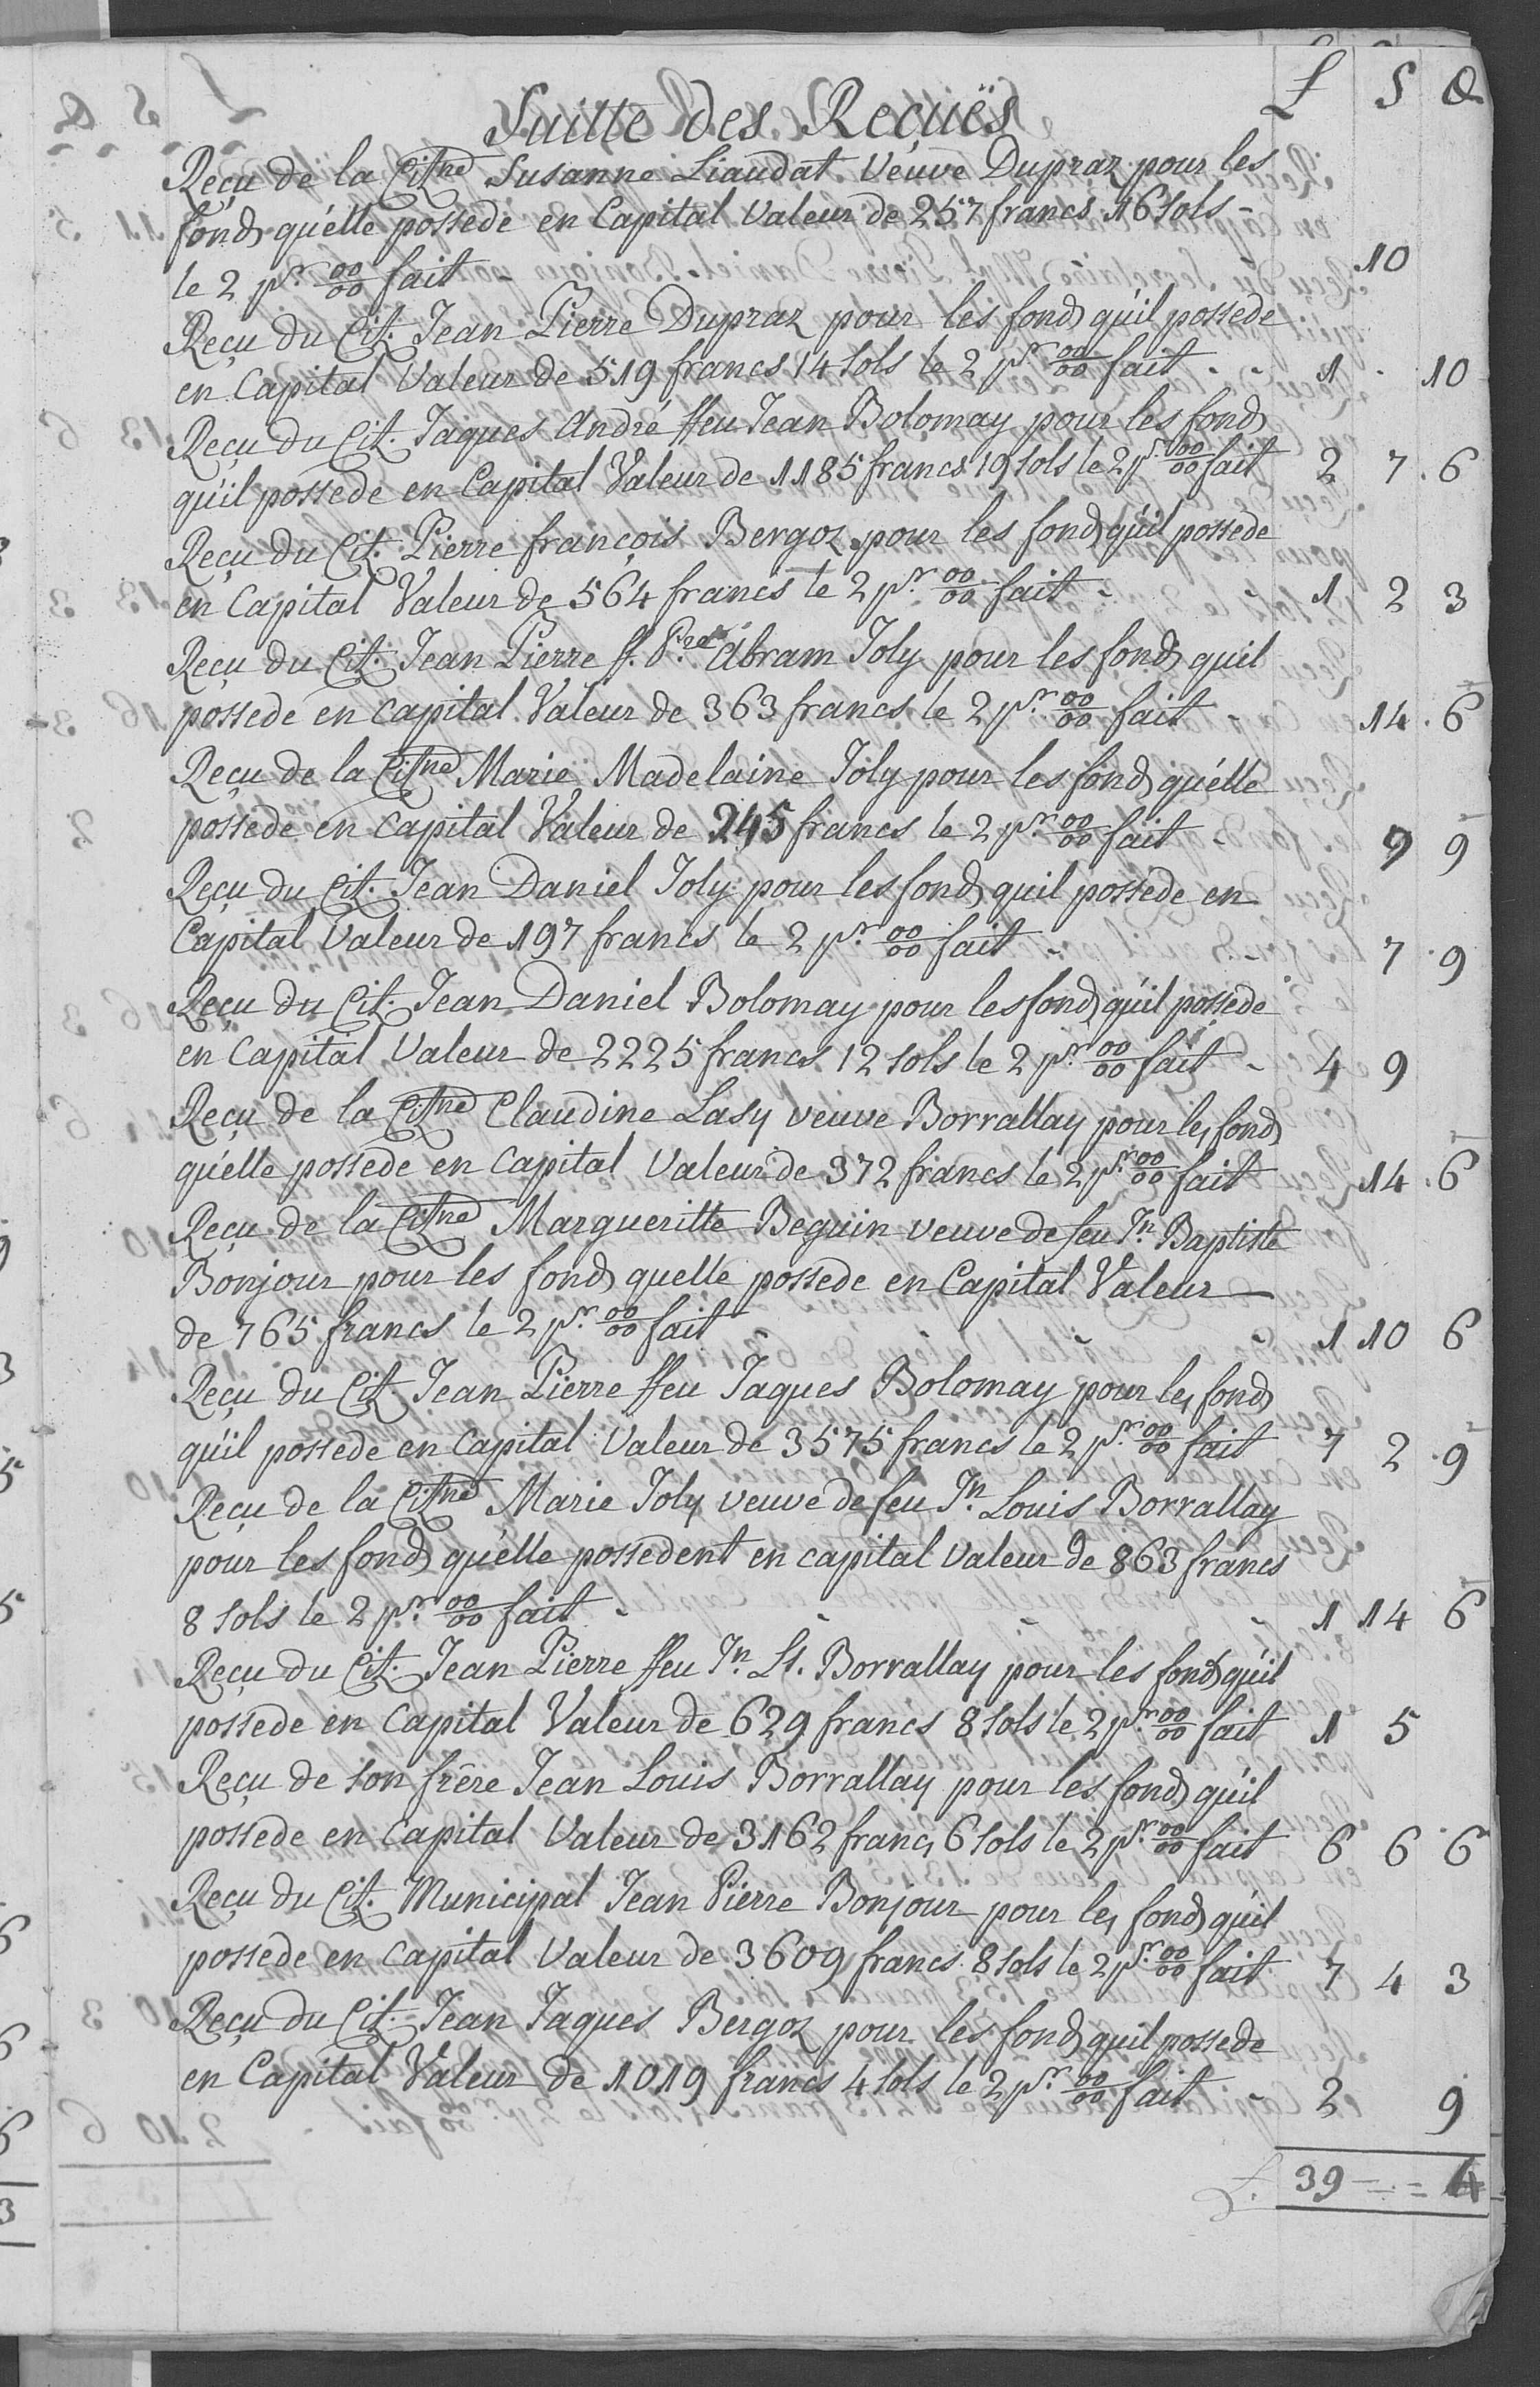 £ S D
Suitte des Reçuës
Reçu de la Citne Susanne Liaudat Veuve Dupraz pour les
fonds qu'elle possede en Capital Valeur de 257 francs 16 sols -
le 2 pr. 00/00 fait 10
Reçu du Cit. Jean Pierre Dupraz pour les fonds qu'il possede
en Capital Valeur de 519 francs 14 sols le 2 pr 00/00 fait - - 1 - 10
Reçu du Cit. Jaques André ffeu Jean Bolomay pour les fonds
qu'il possede en Capital Valeur de 1185 francs 19 sols le 2 pr. 00/00 fait 2 7 . 6
Reçu du Cit. Pierre françois Bergoz pour les fonds qu'il possede
en Capital Valeur de 564 francs le 2 pr. 00/00 fait - - 1 2 3
Reçu du Cit. Jean Pierre ff. Pre Abram Joly pour les fonds qu'il
possede en capital Valeur de 363 francs le 2 pr. 00/00 fait - 14 . 6
Reçu de la Citne Marie Madelaine Joly pour les fonds qu'elle
possede en capital Valeur de 245 francs le 2 pr. 00/00 fait - 9 9
Reçu du Cit. Jean Daniel Joly pour les fonds qu'il possede en
Capital Valeur de 197 francs le 2 pr. 00/00 fait - - 7 . 9
Reçu du Cit. Jean Daniel Bolomay pour les fonds qu'il possede
en Capital Valeur de 2225 francs 12 sols le 2 pr. 00/00 fait - 4 9
Reçu de la Citne Claudine Lasy veuve Borrallay pour les fonds
qu'elle possede en Capital Valeur de 372 francs le 2 pr. 00/00 fait 14 . 6
Reçu de la Citne Margueritte Beguin veuve de feu Jn Baptiste
Bonjour pour les fonds quelle possede en Capital Valeur
de 765 francs le 2 pr. 00/00 fait - - - 1 10 6
Reçu du Cit. Jean Pierre ffeu Jaques Bolomay pour les fonds
qu'il possede en Capital Valeur de 3575 francs le 2 pr. 00/00 fait 7 2 . 9
Reçu de la Citne Marie Joly veuve de feu Jn. Louis Borrallay
pour les fonds qu'elle possedent en capital Valeur de 863 francs
8 sols le 2 pr. 00/00 fait - - - - 1 14 6
Reçu du Cit. Jean Pierre ffeu Jn. Ls. Borrallay pour les fonds qu'il
possede en Capital Valeur de 629 francs 8 sols le 2 pr. 00/00 fait 1 5
Reçu de son frêre Jean Louis Borrallay pour les fonds qu'il
possede en Capital Valeur de 3162 francs 6 sols le 2 pr. 00/00 fait 6 6 6
Reçu du Cit. Municipal Jean Pierre Bonjour pour les fonds qu'il
possede en Capital Valeur de 3609 francs 8 sols le 2 pr. 00/00 fait 7 4 3
Reçu du Cit. Jean Jaques Bergoz pour les fonds qu'il possede
en Capital Valeur de 1019 francs 4 sols le 2 pr. 00/00 fait - 2 9
£. 39 - . = 4